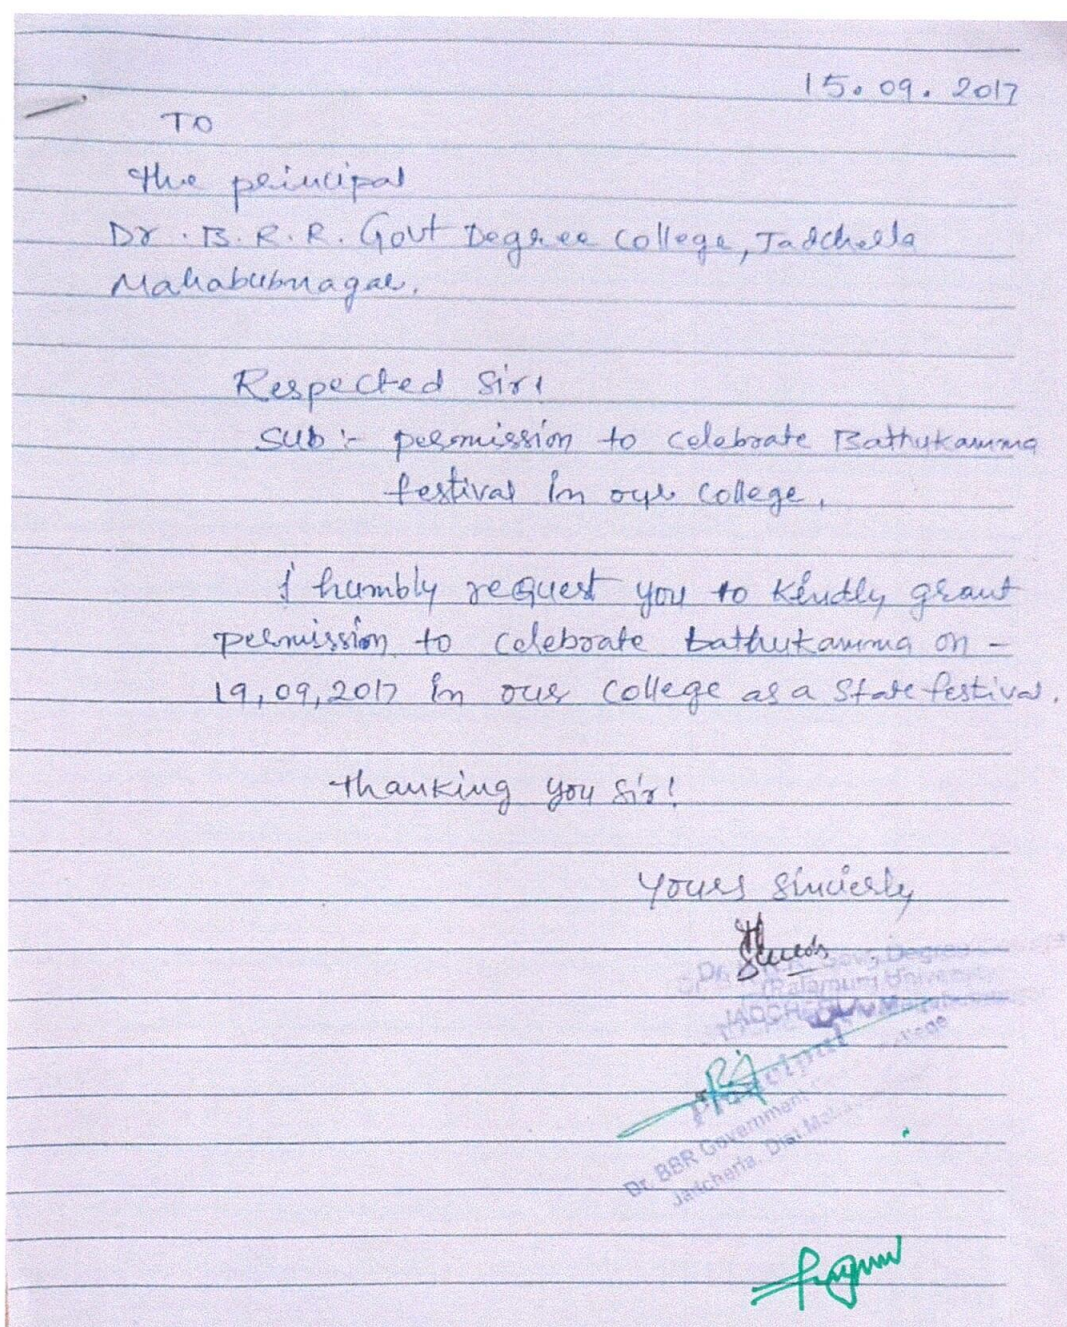 15.09.2017
TO
the principal
Dr. B.R.R. Govt Degree college, Jadcherla
Mahabubnagar.
Respected Sir!
Sub:- permission to celebrate Bathukamma
festival in our college.
I humbly request you to kindly grant
permission to celebrate bathukamma on -
19,09,2017 in our college as a State festival.
thanking you sir!
yours sincerely
Govt, Degree
(Palamuru University
JADCHERLA
Principal
Dr. BBR Government
Jadcherla, Dist